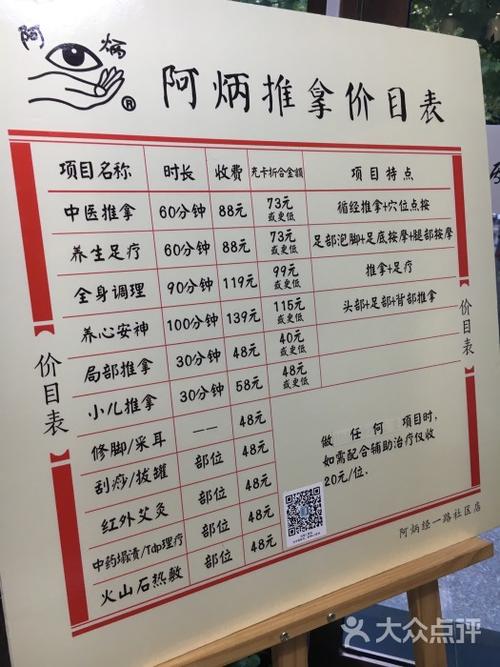 阿 炳 ®
阿炳推拿价目表
项目名称 时长 收费 充卡折合金额 项目特点
中医推拿 60分钟 88元 73元或更低 循经推拿+穴位点按
养生足疗 60分钟 88元 73元或更低 足部泡脚+足底按摩+腿部按摩
全身调理 90分钟 119元 99元或更低 推拿+足疗
养心安神 100分钟 139元 115元或更低 头部+足部+背部推拿
局部推拿 30分钟 48元 40元或更低
小儿推拿 30分钟 58元 48元或更低
修脚/采耳 —— 48元
刮痧/拔罐 部位 48元
红外艾灸 部位 48元
中药塌渍/Tdp理疗 部位 48元
火山石热敷 部位 48元
做任何项目时,
如需配合辅助治疗仅收
20元/位.
价目表
价目表
阿炳经一路社区店
大众点评